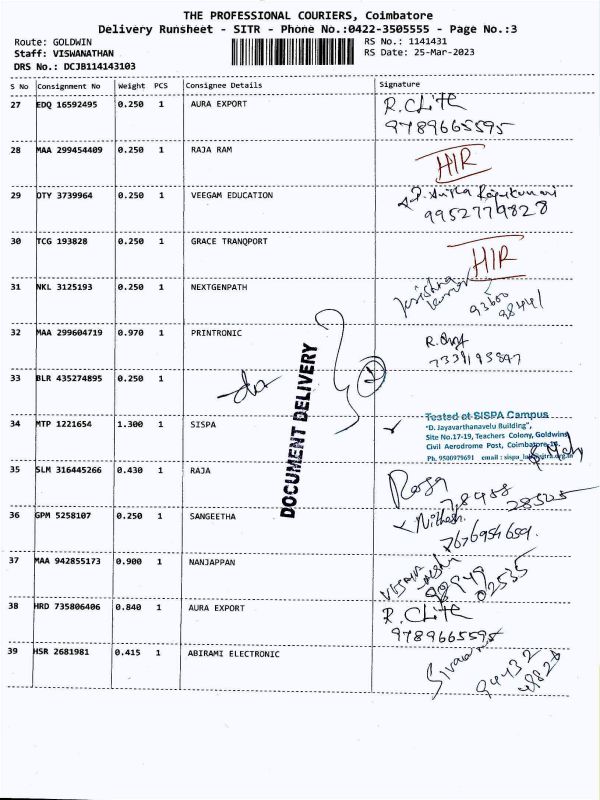 THE PROFESSIONAL COURIERS, Coimbatore
Delivery Runsheet - SITR - Phone No.:0422-3505555 - Page No.:3
Route: GOLDWIN
Staff: VISWANATHAN
DRS No.: DCJB114143103
RS No.: 1141431
RS Date: 25-Mar-2023
S No Consignment No Weight PCS Consignee Details Signature
27 EDQ 16592495 0.250 1 AURA EXPORT R.
9789665595
28 MAA 299454409 0.250 1 RAJA RAM HIR
29 OTY 3739964 0.250 1 VEEGAM EDUCATION
9952779828
30 TCG 193828 0.250 1 GRACE TRANQPORT HIR
31 NKL 3125193 0.250 1 NEXTGENPATH
32 MAA 299604719 0.970 1 PRINTRONIC
33 BLR 435274895 0.250 1
DOCUMENT DELIVERY
34 MTP 1221654 1.300 1 SISPA
Tested at SISPA Campus
"D. Jayavarthanavelu Building",
Site No.17-19, Teachers Colony, Goldwins
Civil Aerodrome Post, Coimbatore-14.
Ph. 9500979691 email :
35 SLM 316445266 0.430 1 RAJA
36 GPM 5258107 0.250 1 SANGEETHA Nithesh
7676954659
37 MAA 942855173 0.900 1 NANJAPPAN
02535
38 HRD 735806406 0.840 1 AURA EXPORT R.
9789665595
39 HSR 2681981 0.415 1 ABIRAMI ELECTRONIC
94432